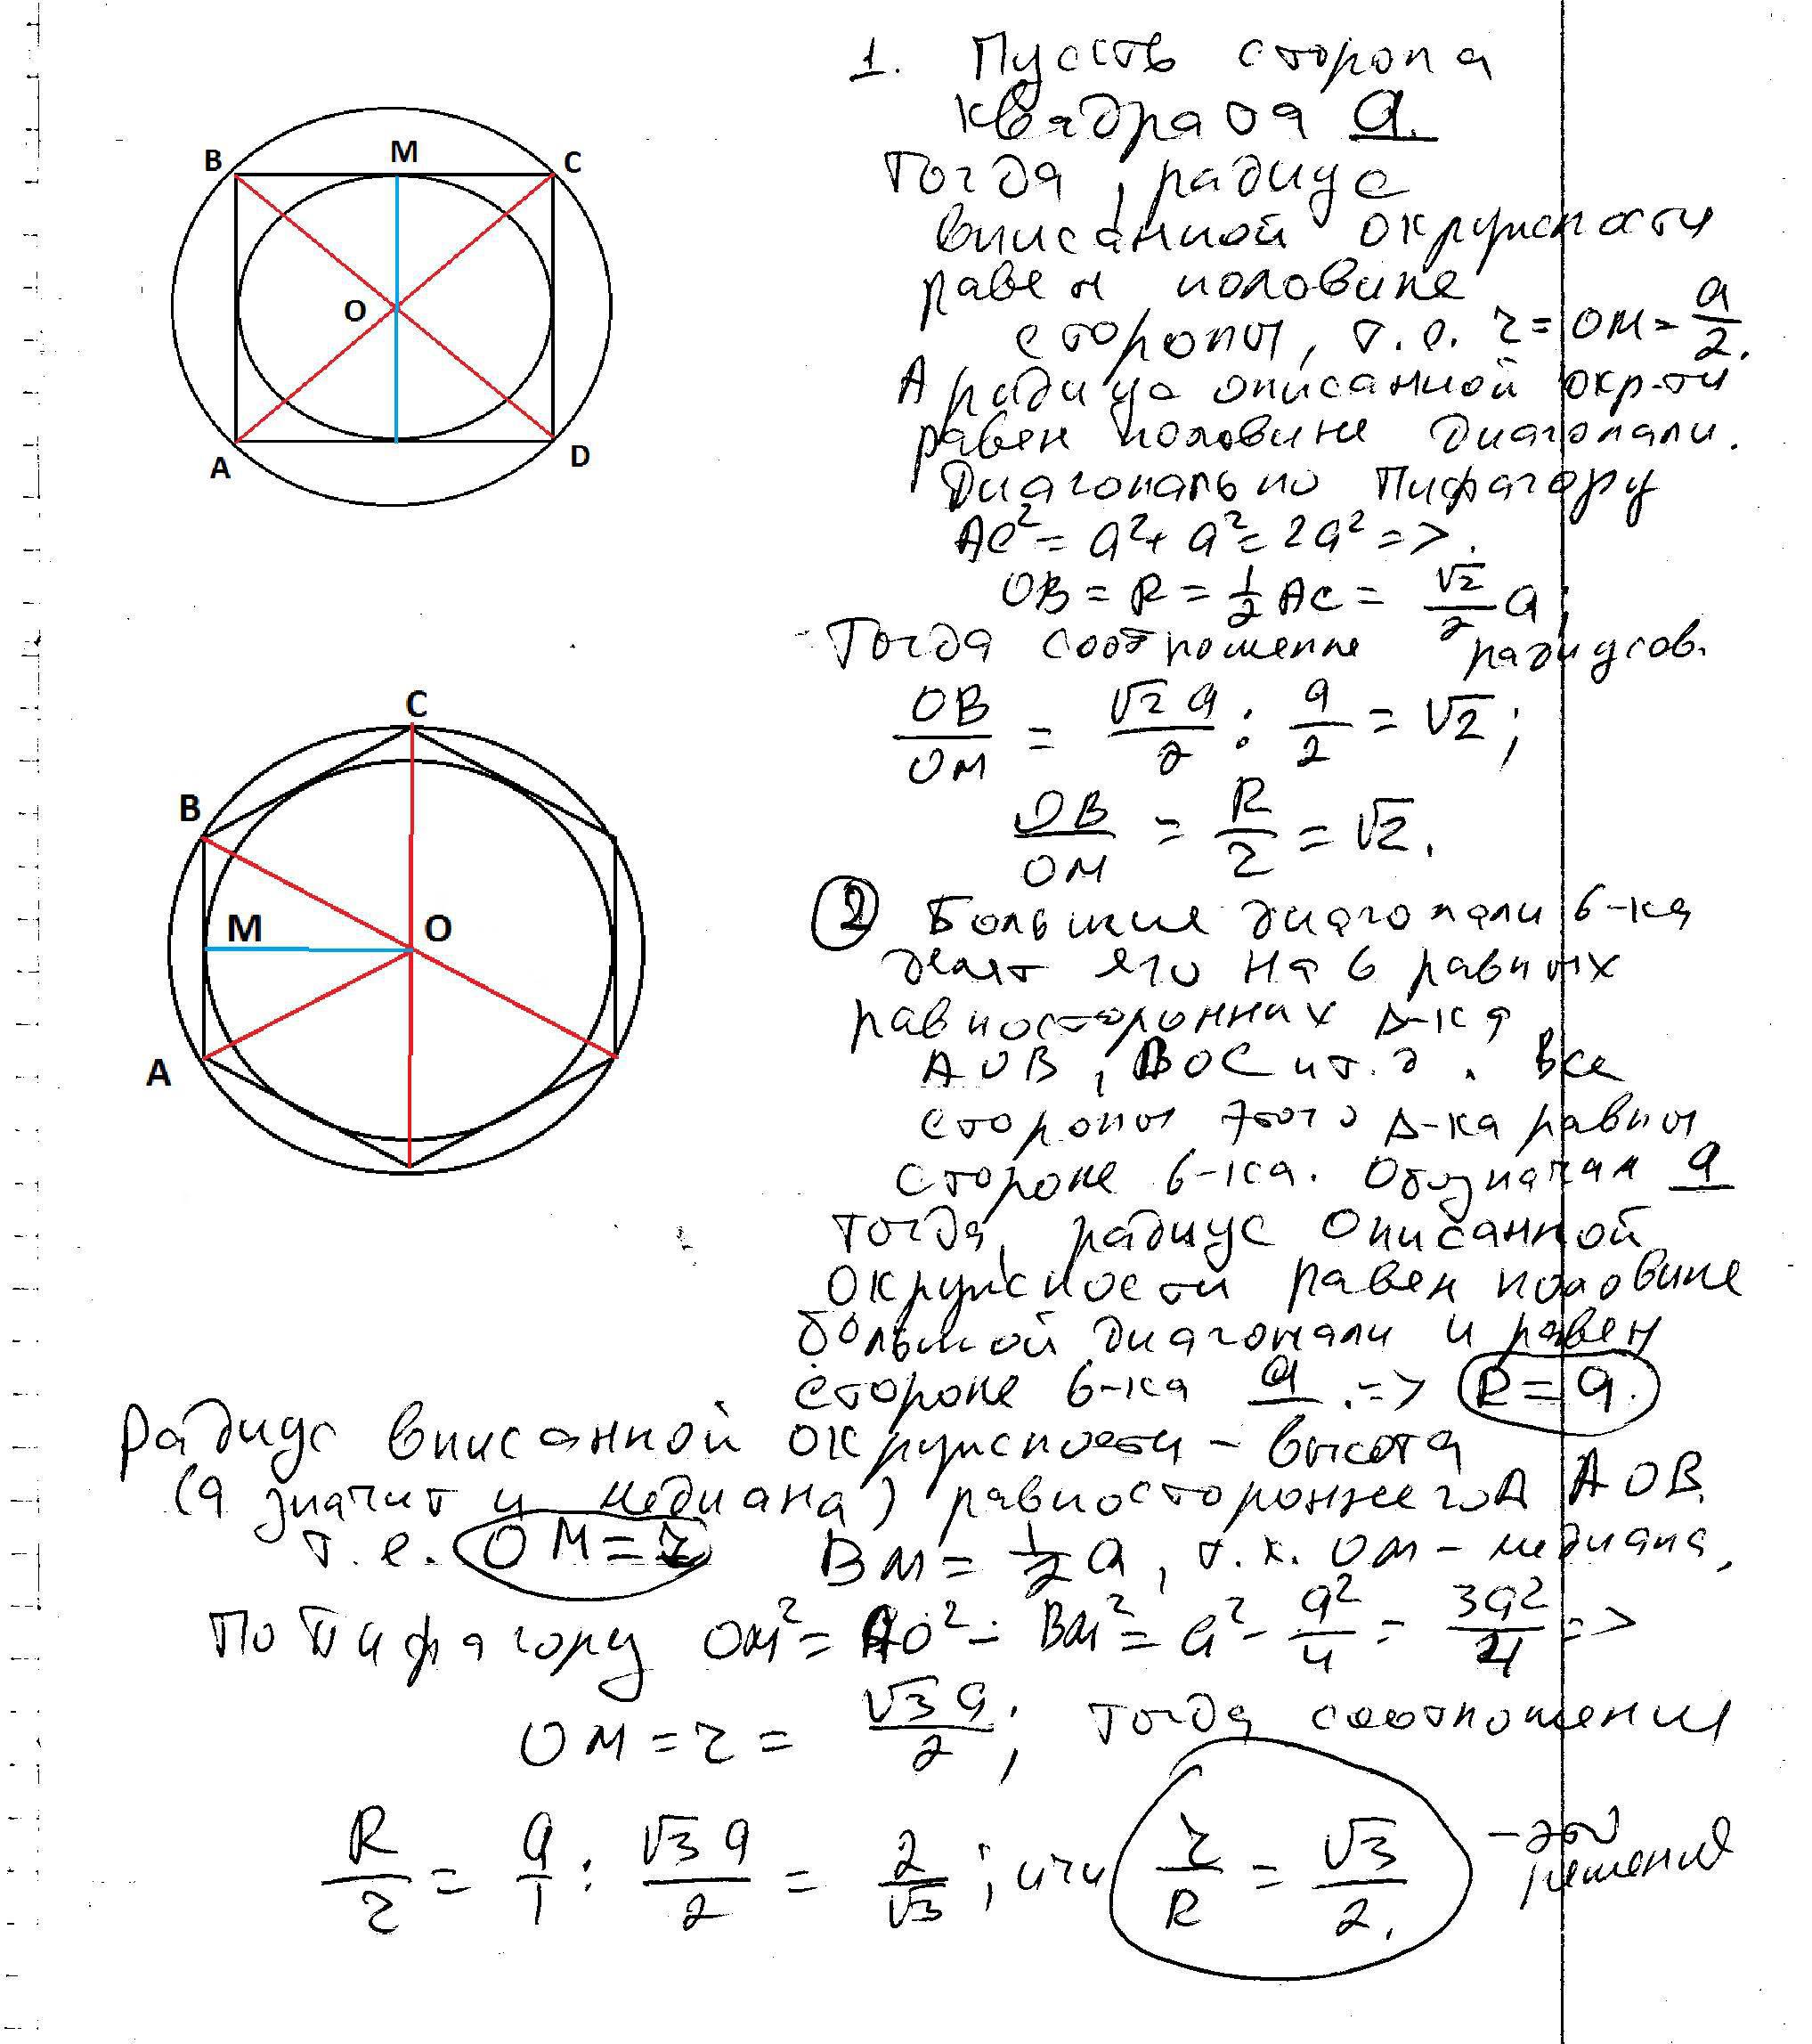 1. Пусть сторона
квадрата a.
Тогда, радиус
вписанной окружности
равен половине
стороны, т.е. r = OM = a/2.
А радиус описанной окр-ти
равен половине диагонали.
Диагональ по Пифагору
AC² = a² + a² = 2a² =>.
OB = R = 1/2 AC = √2/2 a;
Тогда соотношение радиусов.
OB/OM = √2 a/2 : a/2 = √2;
OB/OM = R/r = √2.
B M C
O
A D
2 Большие диагонали 6-ка
делят его на 6 равных
равносторонних Δ-ка
AOB, BOC и т.д. Все
стороны этого Δ-ка равны
стороне 6-ка. Обозначим a
тогда, радиус описанной
окружности равен половине
большой диагонали и равен
стороне 6-ка a. => R = a.
C
B
M O
A
Радиус вписанной окружности - высота
(а значит и медиана) равностороннего Δ AOB.
т.е. OM = r BM = 1/2 a, т.к. OM - медиана,
По Пифагору OM² = AO² - BM² = a² - a²/4 = 3a²/4 =>
OM = r = √3 a/2; тогда соотношения
R/r = a/1 : √3 a/2 = 2/√3; или r/R = √3/2. - это
решения